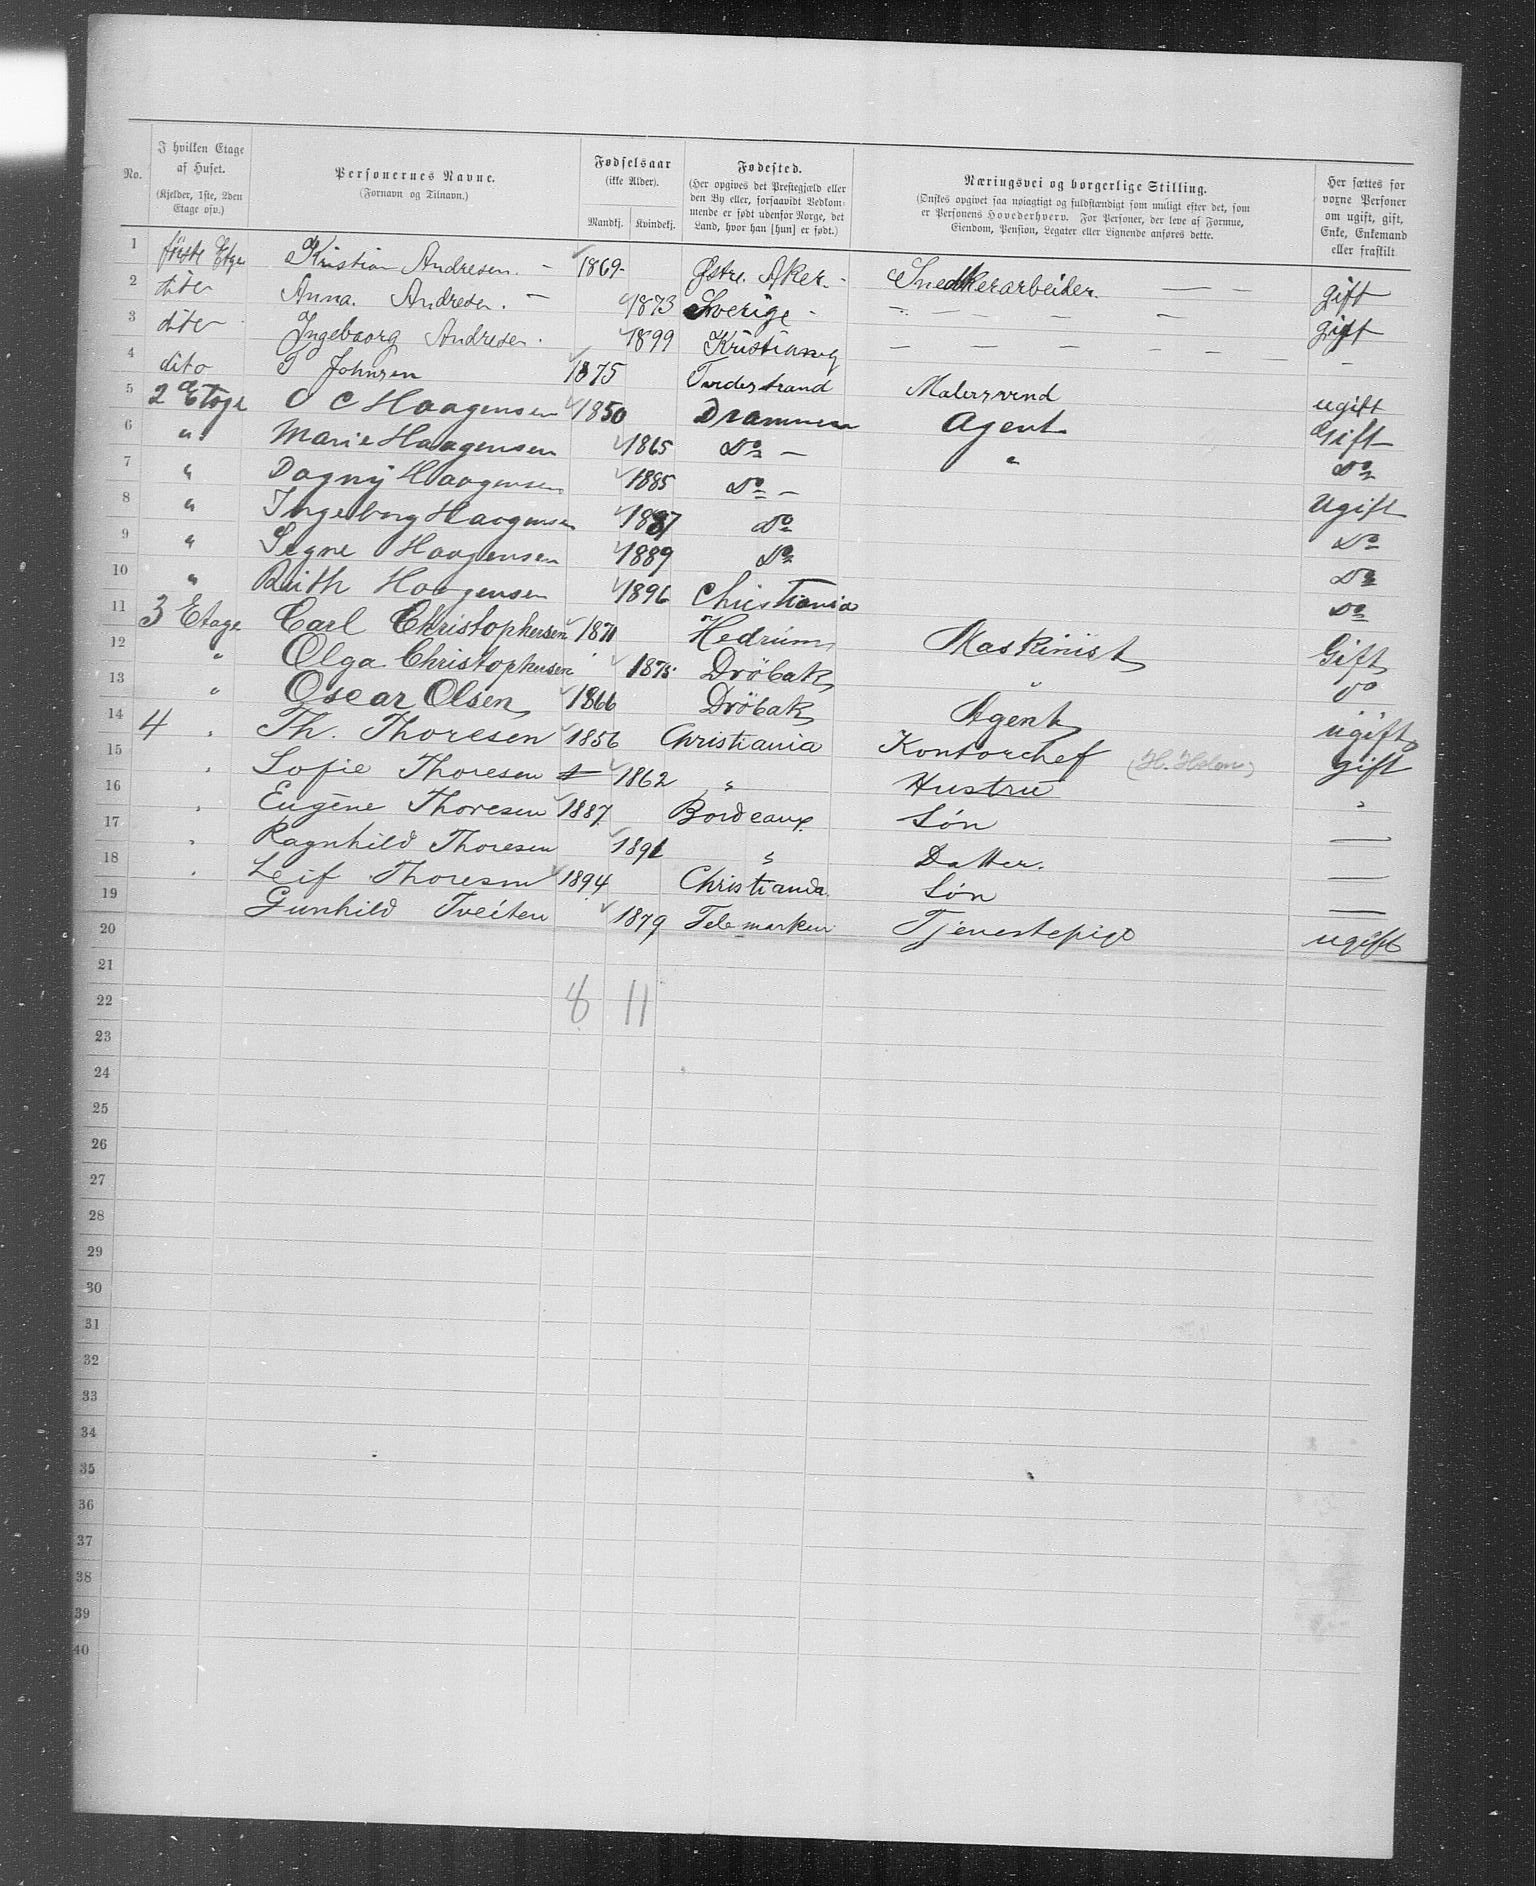 No. I hvilken Etage af Huset. (Kjelder, 1ste, 2den Etage osv.) Personernes Navne. (Fornavn og Tilnavn.) Fødselsaar (ikke Alder). Mandkj. Kvindekj. Fødested. (Her opgives det Prestegjæld eller den By eller, forsaavidt Vedkommende er født udenfor Norge, det Land, hvor han [hun] er født.) Næringsvei og borgerlige Stilling. (Ønskes opgivet saa nøiagtigt og fuldstændigt som muligt efter det, som er Personens Hovederhverv. For Personer, der leve af Formue, Eiendom, Pension, Legater eller Lignende anføres dette. Her sættes for voxne Personer om ugift, gift, Enke, Enkemand eller fraskilt
1 første Etge Kristian Andresen. - 1869- Østre. Aker. - Snedkerarbeider. — — gift
2 dito Anna. Andresen. — 1873 Sverige - - — — — — gift
3 dito Ingebaorg Andresen. 1899 Kristiania — — — — — — — —
4 dito T Johnsen 1875 Tvedestrand Malersvend ugift
5 2 Etage O C Haagensen 1850 Drammen Agent Gift
6 " Marie Haagensen 1865 Do — " Do
7 " Dagny Haagensen 1885 Do — Ugift
8 " Ingeborg Haagensen 1887 Do Do
9 " Segne Haagensen 1889 Do Do
10 " Ruith Haagensen 1896 Christiania Do
11 3 Etage Carl Christophersen 1871 Hedrum Maskinist Gift
12 " Olga Christophersen 1875 Drøbak " Do
13 " Oscar Olsen 1866 Drøbak Agent ugift
14 4 " Th. Thoresen 1856 Christiania Kontorchef gift
15 " Sofie Thoresen 1862 " Hustru "
16 " Eugène Thoresen 1887 Bordeaux Søn —
17 " Ragnhild Thoresen 1891 " Datter. —
18 " Leif Thoresen 1894 Christiania Søn —
19 Gunhild Tveiten 1879 Telemarken Tjenestepige ugift
20
21
22 8 11
23
24
25
26
27
28
29
30
31
32
33
34
35
36
37
38
39
40